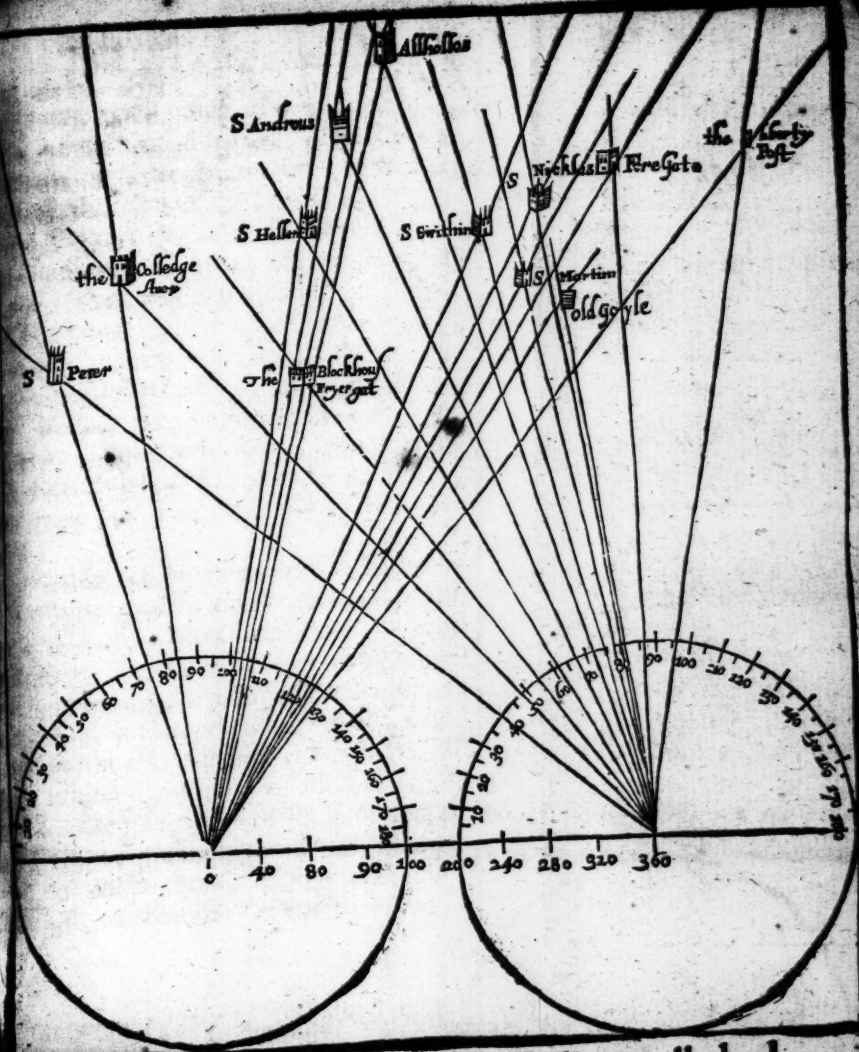 Allhollos
S Androus
the Liberty
Post
S Nycklas
FereGate
S Hellen
S Swithin
the Colledge
S Martim
old goyle
S Peter
The Blockhou
Fryergat
20 30 40 50 60 70 80 90 100 110 120 130 140 150 160 170 180
10 20 30 40 50 60 70 80 90 100 110 120 130 140 150 160 170 180
0 40 80 90 100 200 240 280 320 360